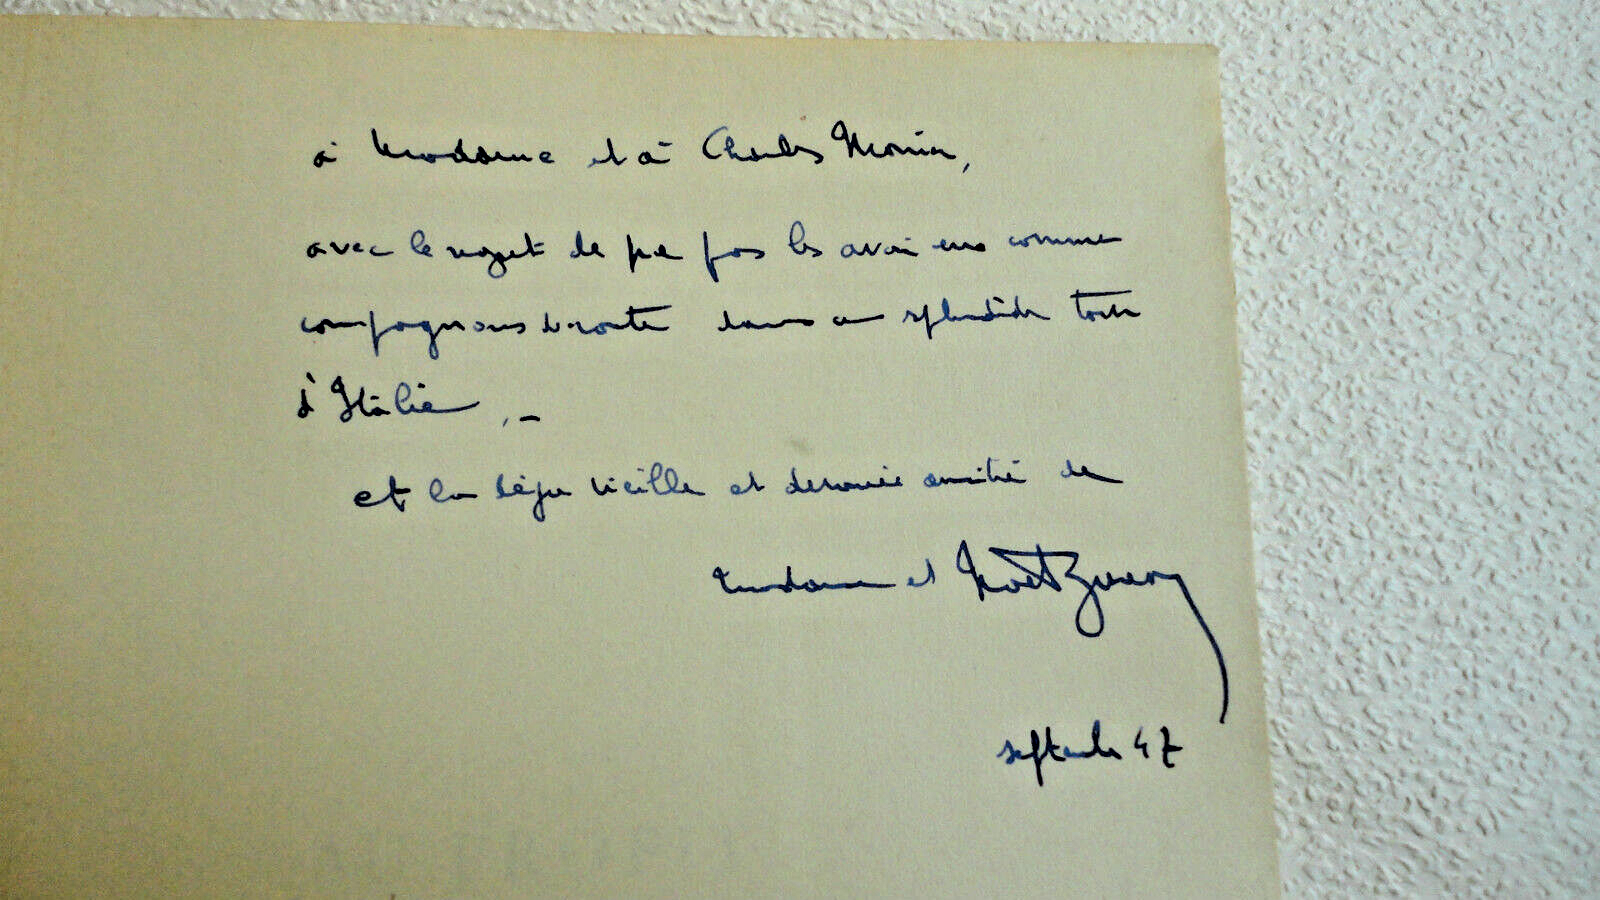 à Madame et à Charles Monier,
avec le regret de ne pas les avoir eus comme
compagnons de route dans un splendide tour
d'Italie . –
et la déjà vieille et dévouée amitié de
Madame et
septembre 47